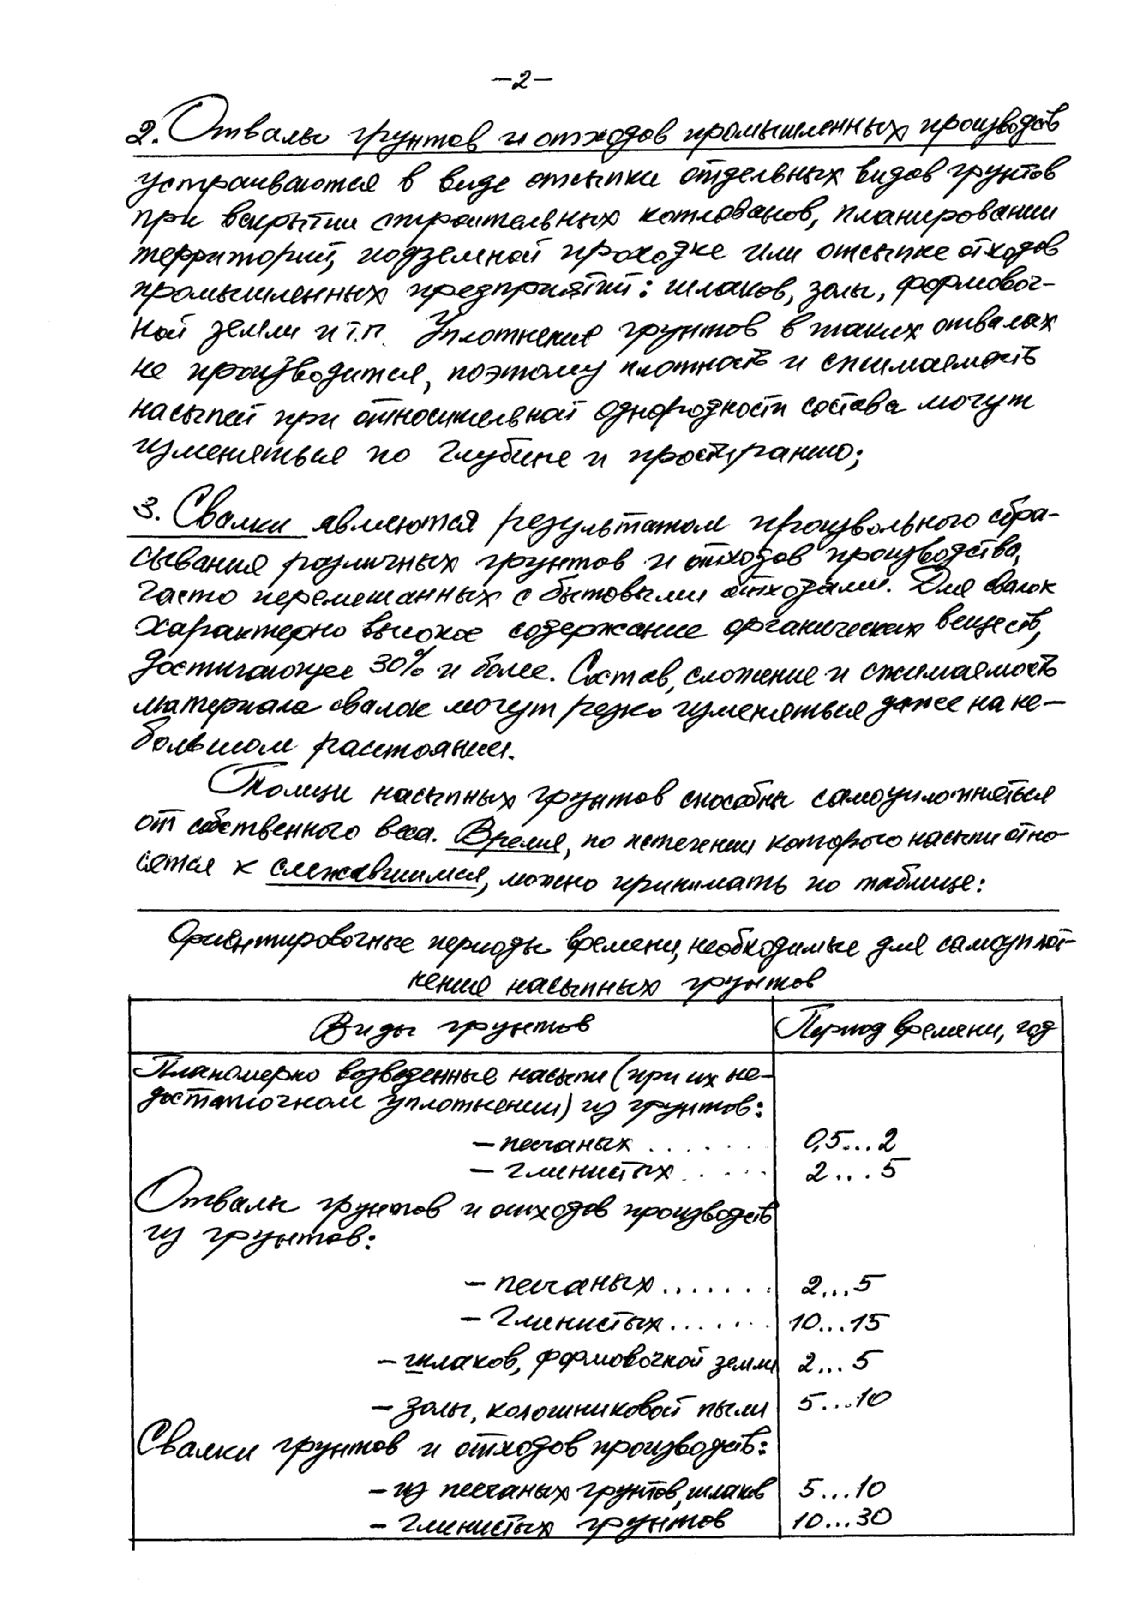 –2–
2. Отвалы грунтов и отходов промышленных производств
устраиваются в виде отсыпки отдельных видов грунтов
при вскрытии строительных котлованов, планировании
территорий, подземной проходке или отсыпке отходов
промышленных предприятий: шлаков, золы, формовоч-
ной земли и т.п. Уплотнение грунтов в таких отвалах
не производится, поэтому плотность и сжимаемость
насыпей при относительной однородности состава могут
изменяться по глубине и простиранию;
3. Свалки являются результатом произвольного сбра-
сывания различных грунтов и отходов производства,
часто перемешанных с бытовыми отходами. Для свалок
характерно высокое содержание органических веществ,
достигающее 30% и более. Состав, сложение и сжимаемость
материала свалок могут резко изменяться даже на не-
большом расстоянии.
Толщи насыпных грунтов способны самоуплотняться
от собственного веса. Время, по истечении которого насыпи отно-
сятся к слежавшимся, можно принимать по таблице:
Ориентировочные периоды времени, необходимые для самоуплот-
нения насыпных грунтов
Виды грунтов Период времени, год
Планомерно возведенные насыпи (при их не-
достаточном уплотнении) из грунтов:
– песчаных ....... 0,5...2
– глинистых ..... 2...5
Отвалы грунтов и отходов производств
из грунтов:
– песчаных ....... 2...5
– глинистых ...... 10...15
– шлаков, формовочной земли 2...5
– золы, колошниковой пыли 5...10
Свалки грунтов и отходов производств:
– из песчаных грунтов, шлаков 5...10
– глинистых грунтов 10...30